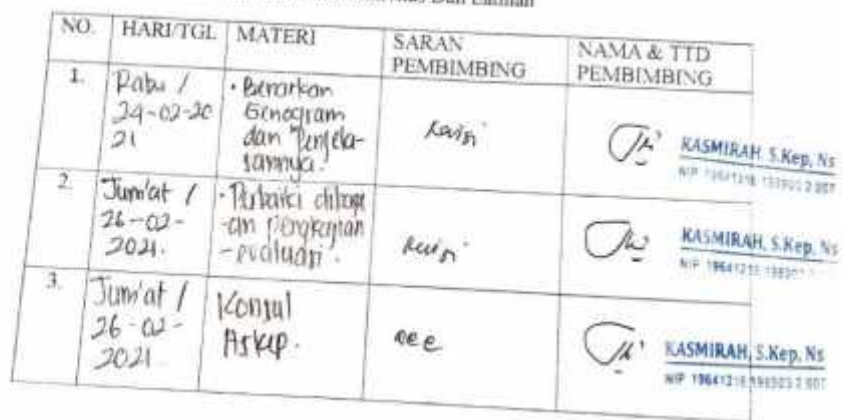 Dan Latihan
NO. HARI/TGL MATERI SARAN PEMBIMBING NAMA & TTD PEMBIMBING
1. Rabu / 24-02-2021
· Benarkan Genogram dan Penjela-sannya.
Revisi
KASMIRAH, S.Kep, Ns
NIP
2. Jum'at / 26-02-2021.
· Perbaiki dibagi-an pengkajian - evaluasi.
Revisi
KASMIRAH, S.Kep, Ns
NIP
3. Jum'at / 26-02-2021
Konsul Askep.
acc
KASMIRAH, S.Kep, Ns
NIP